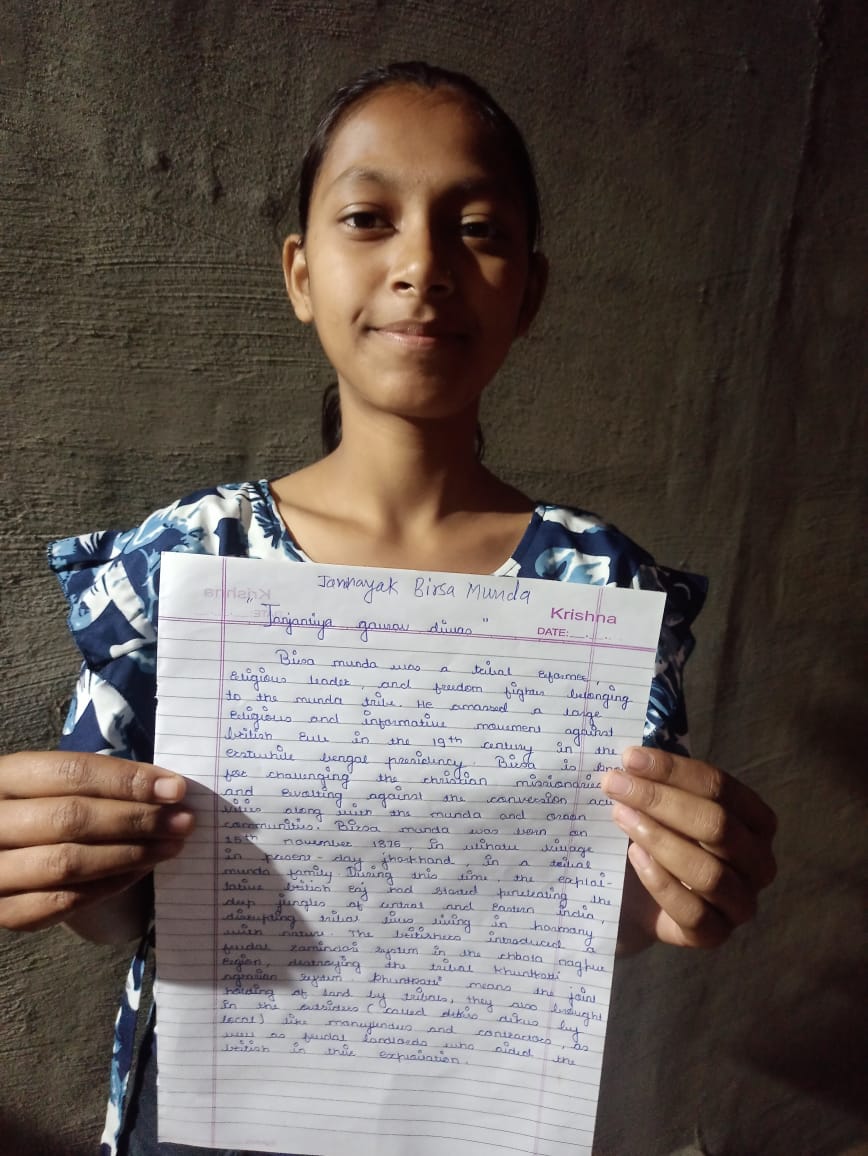 Jannayak Birsa Munda
Krishna
DATE:
"Janjaniya gaurav diwas"
Birsa munda was a tribal reformer,
religious leader, and freedom fighter belonging
to the munda tribe. He amassed a large
religious and informative movement against
british rule in the 19th century in the
erstwhile bengal presidency. Birsa is
for challenging the christian missionaries
and revolting against the conversion acti
vities along with the munda and oraon
communities. Birsa munda was born on
15th november 1875, in ulihatu village
in present-day jharkhand, in a tribal
munda family. During this time, the exploi-
tative british raj had started penetrating the
deep jungles of central and eastern india,
disrupting tribal lives living in harmony
with nature. The britishers introduced a
feudal zamindari system in the chhota nagpur
region, destroying the tribal "khuntkatti
agrarian system. Khuntkatti" means the joint
holding of land by tribals, they also brought
in the outsiders (called dikus dikus by
local) like moneylenders and contractors, as
well as feudal landlords who aided the
british in their